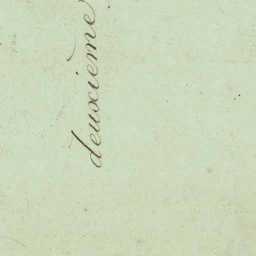 deuxième